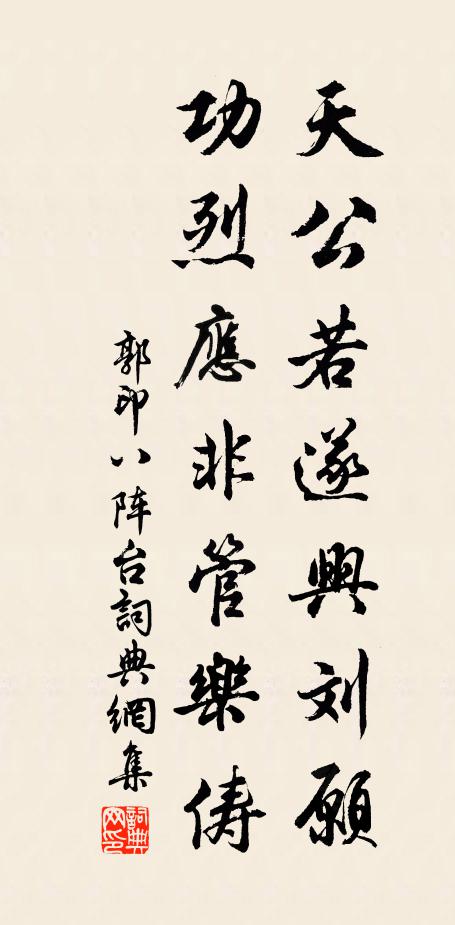 天公若遂興刘願
功烈應非管樂儔
郭印八阵台詞典網集
詞典网印